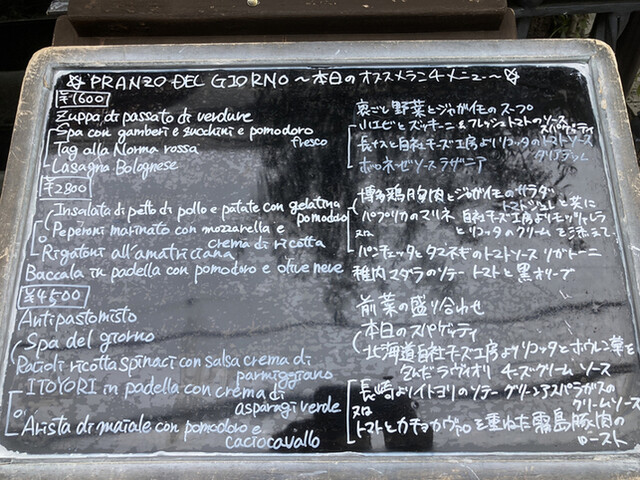 ☆ PRANZO DEL GIORNO ～本日のオススメランチメニュー～ ☆
¥1600
Zuppa di passato di verdure
Spa con gamberi e zucchini e pomodoro fresco
Tag alla Norma rossa
Lasagna Bolognese
裏ごし野菜とジャガイモのスープ
小エビとズッキーニ & フレッシュトマトのソース スパゲッティ
長ナスと自社チーズ工房よりリコッタのトマトソース タリアテッレ
ボロネーゼソースラザニア
¥2800
Insalata di petto di pollo e patate con gelatina pomodoro
o
Peperoni marinato con mozzarella e crema di ricotta
Rigatoni all'amatriciana
Baccala in padella con pomodoro e olive nere
博多鶏胸肉とジャガイモのサラダ トマトジュレと共に
又は
パプリカのマリネ 自社チーズ工房よりモッツァレラとリコッタのクリームを添えて
パンチェッタとタマネギのトマトソース リガトーニ
稚内マダラのソテー トマトと黒オリーブ
¥4500
Antipastomisto
Spa del giorno
Ravioli ricotta spinaci con salsa crema di parmiggiano
ITOYORI in padella con crema di asparagi verde
o
Arista di maiale con pomodoro e caciocavallo
前菜の盛り合わせ
本日のスパゲッティ
北海道自社チーズ工房よりリコッタとホウレン草を包んだラヴィオリ チーズクリームソース
長崎よりイトヨリのソテー グリーンアスパラガスのクリームソース
又は
トマトとカチョカヴァロを重ねた霧島豚肉のロースト